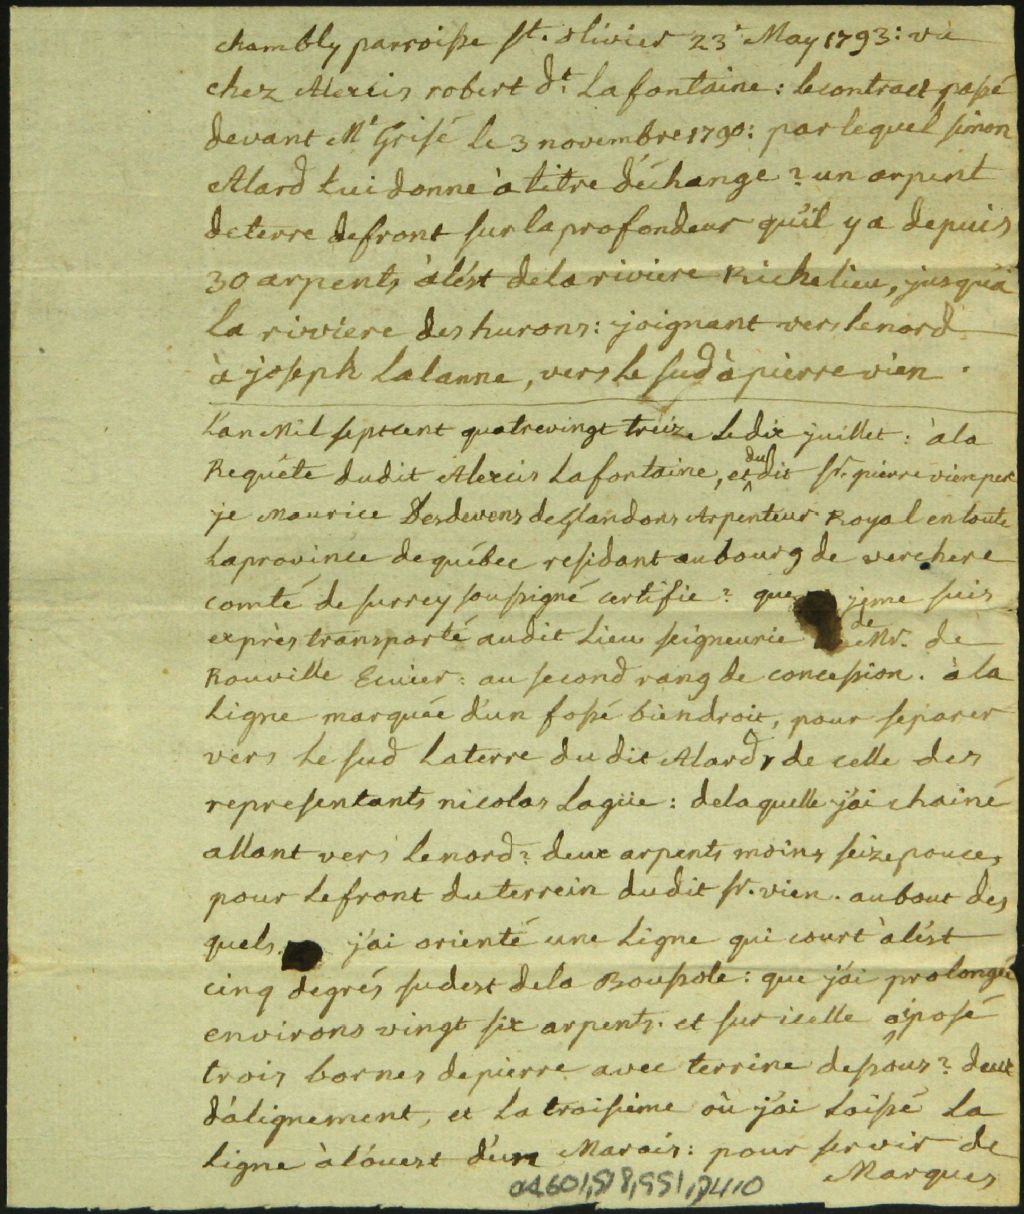 chambly parroisse st. olivier 23e May 1793: vû
chez Alexis robert dt. Lafontaine: le contract passé
devant Me Grisé le 3 novembre 1790: par lequel simon
Alard Lui donne à titre d'échange? un arpent
de terre de front sur la profondeur qu'il y a depuis
30 arpents à lést de la riviere Richelieu, jusqu'à
La rivviere des hurons: joignant vers le nord
à joseph Lalanne, vers Le sud à pierre vien.
L'an Mil septcent quatrevingt treize Le dix juillet: à la
Requéte dudit Alexis Lafontaine, et dudit sr. pierre vien pere
je Maurice Desdevens de Glandons Arpenteur Royal en toute
La province de québec residant au bourg de verchere
comté de surrey soussigné certifie? que je me suis
exprès transporté audit Lieu seigneurie de Mr. de
Rouville Ecuier: au second rang de concession. à la
Ligne marquée d'un fossé bien droit, pour separer
vers Le sud La terre du dit Alard, de celle des
representants nicolas Lagüe: de laquelle j'ai chainé
allant vers Le nord? deux arpents moins seize pouces
pour Le front du terrein dudit sr. vien. au bout des
quels. j'ai orienté une Ligne qui court à lést
cinq degrés sudest de la Boussole: que j'ai prolongée
environs vingt six arpents. et sur icelle ai posé
trois bornes de pierre avec terrine dessous? deux
d'alignement, et La troisiéme où j'ai Laissé La
Ligne à l'óuest d'un Marais: pour servir de
Marques